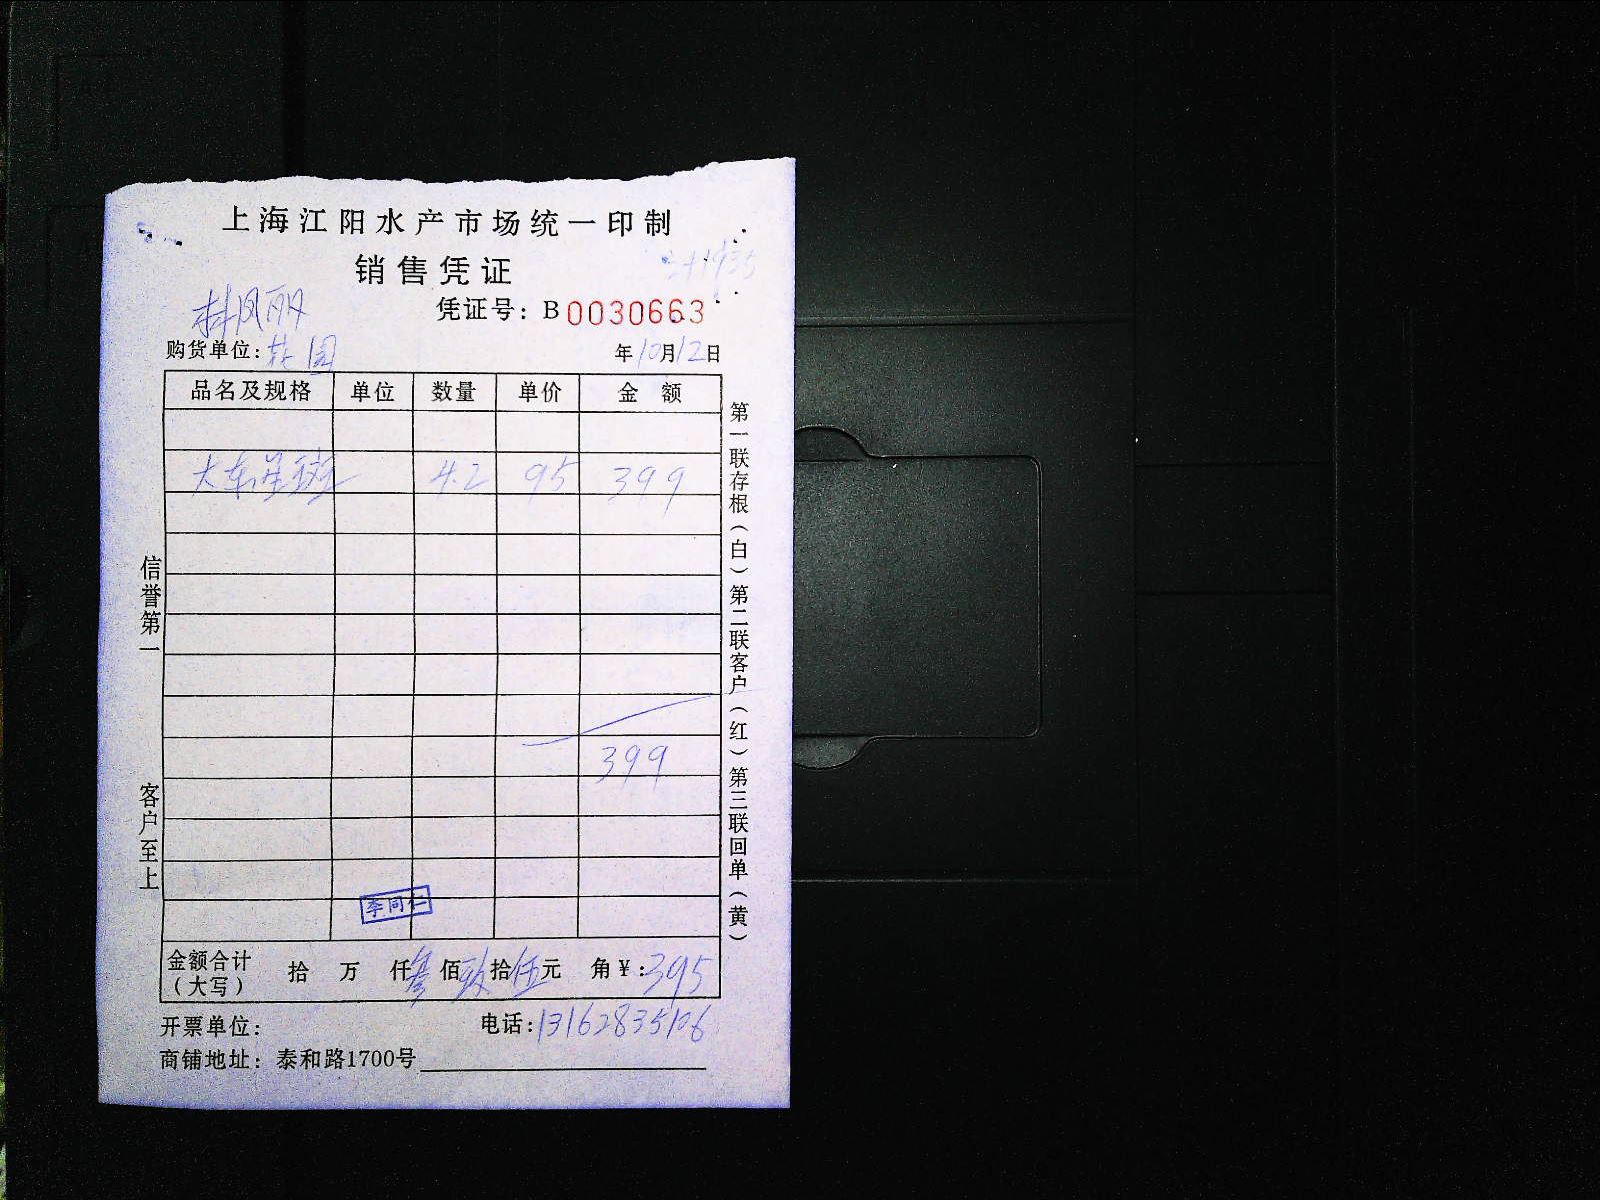 上海江阳水产市场统一印制
销售凭证
林凤丽
凭证号：B 0030663
购货单位： 园
年10月12日
品名及规格 单位 数量 单价 金 额
大东星斑 4.2 95 399
399
李同仁
金额合计（大写） 拾 万 仟叁佰玖拾伍元 角￥：395
开票单位： 电话：13162835106
商铺地址：泰和路1700号
信誉第一 客户至上
第一联存根（白）第二联客户（红）第三联回单（黄）